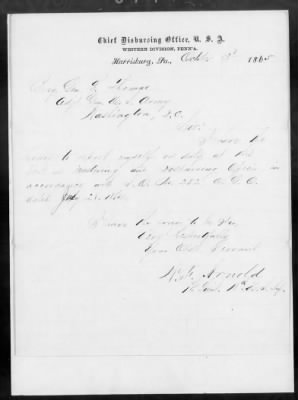 Chief Disbursing Office, U. S. A.
WESTERN DIVISION, PENN'A.
Harrisburg, Pa., Octbr 1865
Genl Thomas
Adjt Gen U. S. Army
Washington, D.C.
Sir
I have the
honor to report myself on duty at this
Mustering and Disbursing Officer in
accordance with S. O. No. A. G. O.
dated 1865
I have the honor to be Sir
Very Respectfully
Your Obdt Servant
Arnold